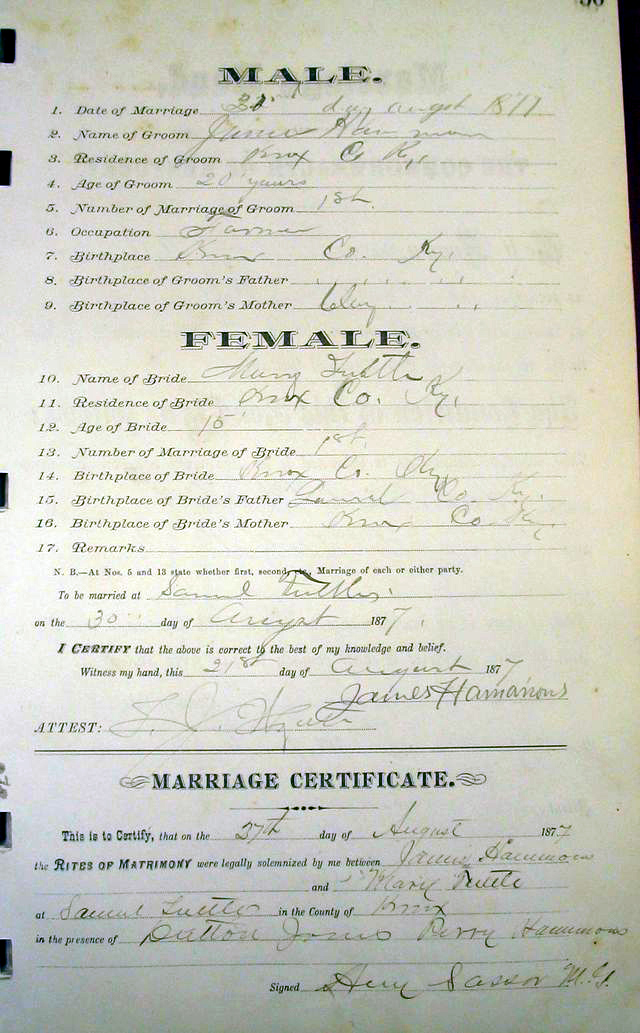 MALE.
1. Date of Marriage day augst 1877
2. Name of Groom James Hammons
3. Residence of Groom Knox Co Ky,
4. Age of Groom 20 years
5. Number of Marriage of Groom 1st.
6. Occupation Farmer
7. Birthplace Knox Co. Ky.
8. Birthplace of Groom's Father " " "
9. Birthplace of Groom's Mother Clay " "
FEMALE.
10. Name of Bride Mary Tuttle
11. Residence of Bride Knox Co. Ky.
12. Age of Bride 15
13. Number of Marriage of Bride 1st.
14. Birthplace of Bride Knox Co. Ky
15. Birthplace of Bride's Father Laurel Co Ky.
16. Birthplace of Bride's Mother Knox Co Ky,
17. Remarks
N. B.—At Nos. 5 and 13 state whether first, second, etc., Marriage of each or either party.
To be married at Samuel Tuttles.
on the 30 day of August 1877.
I CERTIFY that the above is correct to the best of my knowledge and belief.
Witness my hand, this 21st day of August 1877
James Hamanons
ATTEST:
MARRIAGE CERTIFICATE.
This is to Certify, that on the day of August 1877
the RITES OF MATRIMONY were legally solemnized by me between James Hammons
and Mary Tuttle
at Samuel Tuttle in the County of Knox
in the presence of Jones Perry Hammons
Signed M.G.